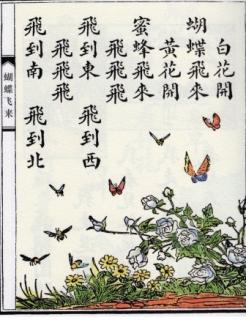 白花開
蝴蝶飛來
黃花開
蜜蜂飛來
飛飛飛
飛到東 飛到西
飛飛飛
飛到南 飛到北
蝴蝶飞来